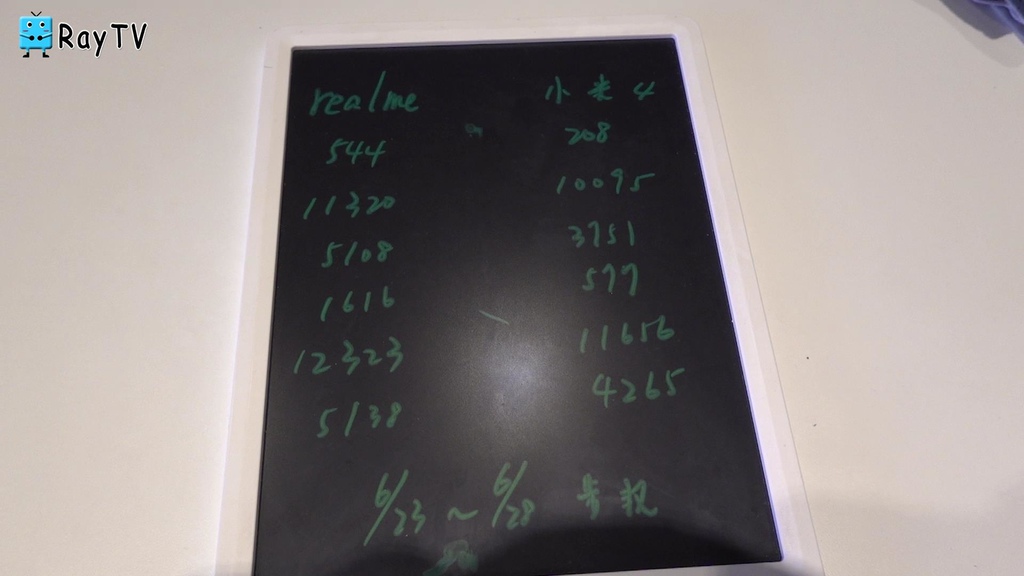 RayTV
realme 小米4
544 208
11320 10095
5108 3751
1616 577
12323 11656
5138 4265
6/23 ~ 6/28 步數